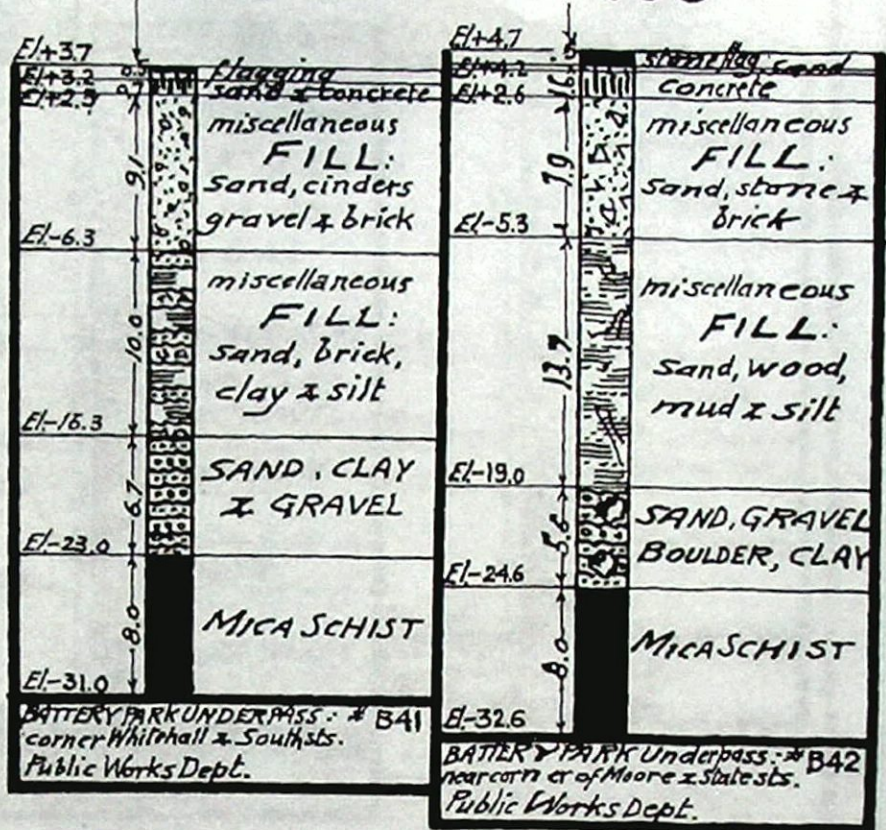 El.+3.7
El.+3.2
El.+2.5
0.5
0.7
flagging
sand & concrete
9.1
miscellaneous
FILL:
sand, cinders
gravel & brick
El.-6.3
10.0
miscellaneous
FILL:
sand, brick,
clay & silt
El.-16.3
6.7
SAND, CLAY
& GRAVEL
El.-23.0
8.0
MICA SCHIST
El.-31.0
BATTERY PARK UNDERPASS: # B41
corner Whitehall & South sts.
Public Works Dept.
El.+4.7
El.+4.2
El.+2.6
.5
1.6
stone flag, sand
concrete
7.9
miscellaneous
FILL:
sand, stone &
brick
El.-5.3
13.7
miscellaneous
FILL:
sand, wood,
mud & silt
El.-19.0
5.6
SAND, GRAVEL
BOULDER, CLAY
El.-24.6
8.0
MICA SCHIST
El.-32.6
BATTERY PARK Underpass: # B42
near corner of Moore & State sts.
Public Works Dept.